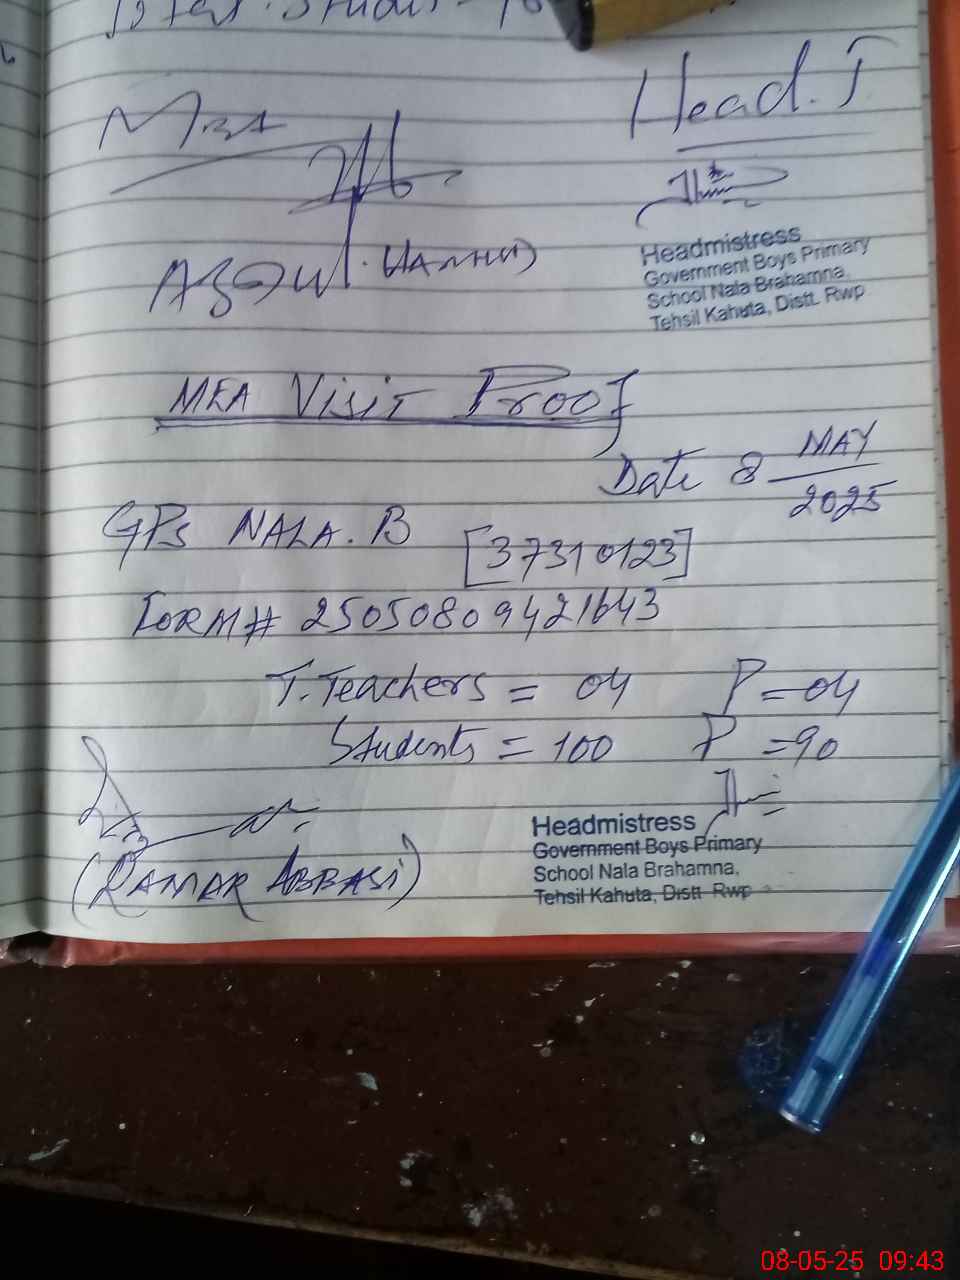 Total. Stud
Head. T
MEA
Headmistress
Government Boys Primary
School Nala Brahamna,
Tehsil Kahuta, Distt. Rwp
MEA Visit Proof
Date 8 MAY
2025
GPS NALA. B [37310123]
FORM# 25050809421643
T. Teachers = 04 P = 04
Students = 100 P = 90
Headmistress
Government Boys Primary
School Nala Brahamna,
Tehsil Kahuta, Distt Rwp
(QAMAR ABBASI)
08-05-25 09:43